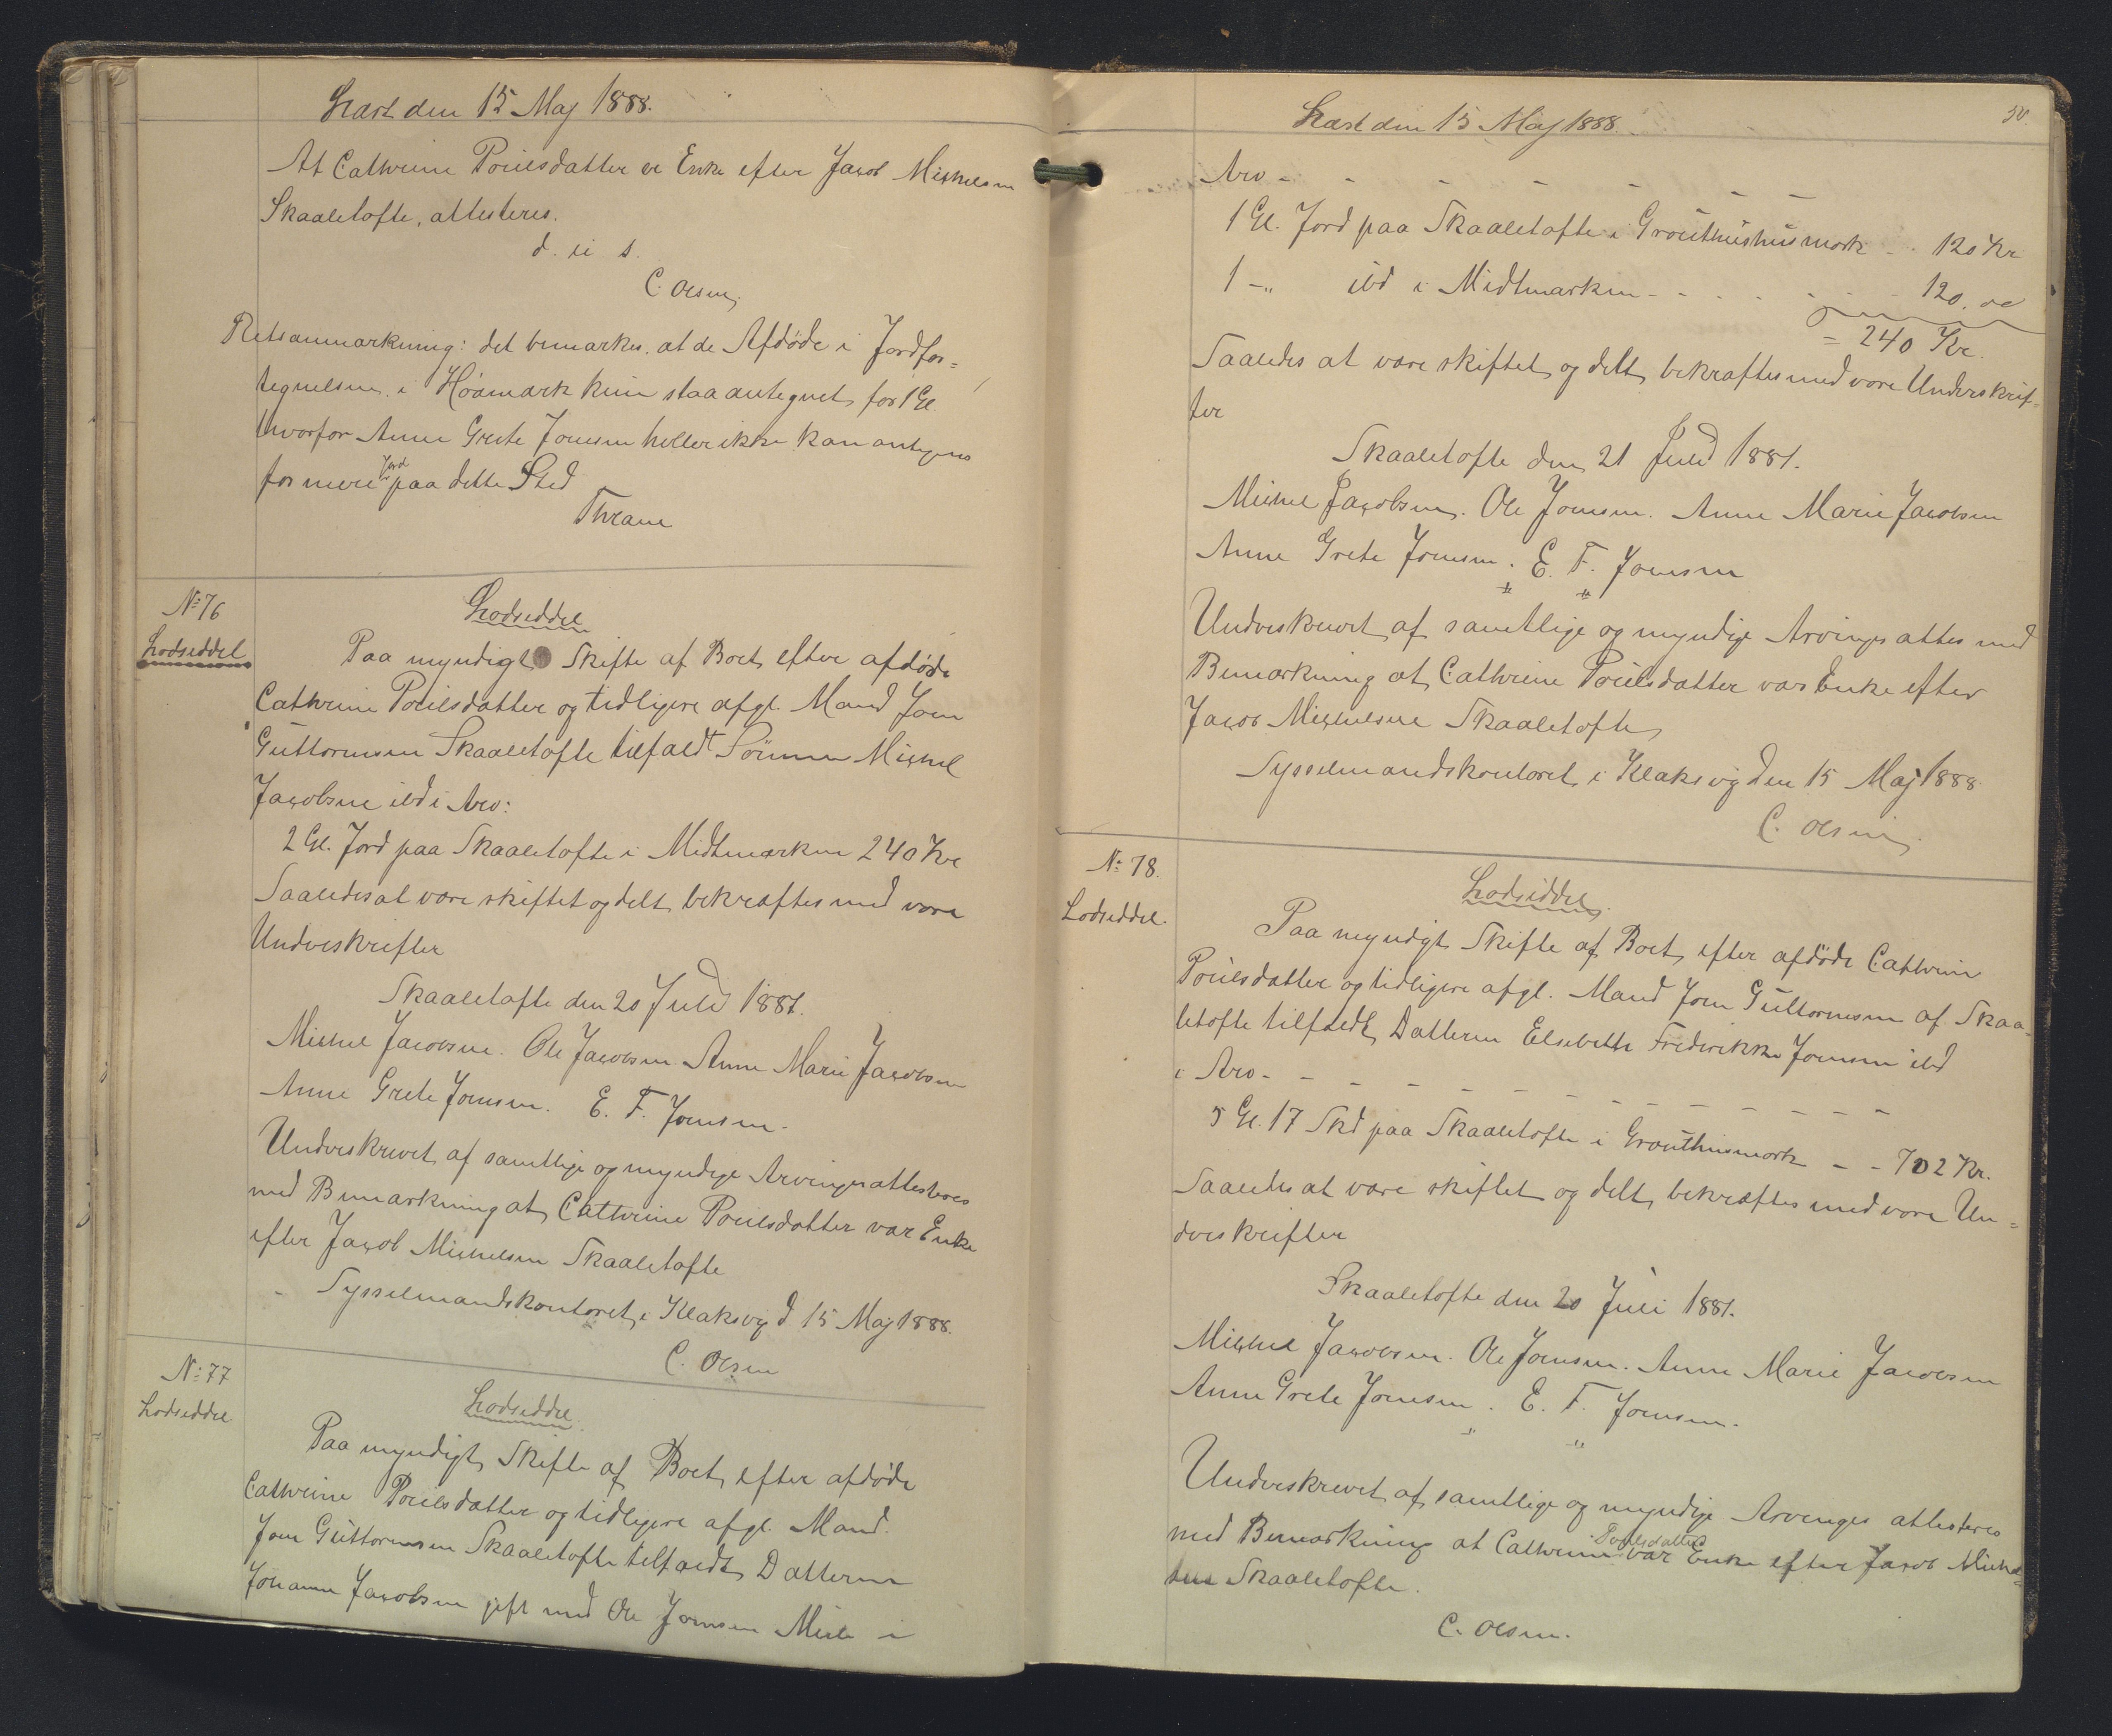 Læst den 15 Maj 1888.
At Cathrine Poulsdatter er Enke efter Jacob Michelsen
Skaaletofte, attesteres.
d. u s.
C. Olsen,
Retsanmærkning: det bemærkes, at de Afdøde i Jordfor=
tegnelsen i Høamark kun staa antegnet for 1 Gl.
hvorfor Anne Grete Joensen heller ikke kan antegnes
for mere Jord paa dette Sted
Thrane
No: 76
Lodseddel
Lodseddel
Paa myndigt Skifte af Boet efter afdøde
Cathrine Poulsdatter og tidligere afgl. Mand Joen
Guttormsen Skaaletofte tilfaldt Sønnen Michel
Jacobsen ibd i Arv:
2 Gl. Jord paa Skaaletofte i Midtmarken 240 Kr
Saaledes at være skiftet og delt bekræftes med vore
Underskrifter
Skaaletofte den 20 Juli 1881.
Michel Jacobsen. Ole Jacobsen Anne Marie Jacobsen
Anne Grete Joensen. E. F. Joensen.
Underskrevet af samtlige og myndige Arvinger attesteres
med Bemærkning at Cathrine Poulsdatter var Enke
efter Jacob Michelsen Skaaletofte
Sysselmandskontoret i Klaksvig d 15 Maj 1888.
C. Olsen
No: 77
Lodseddel
Lodseddel
Paa myndigt Skifte af Boet efter afdøde
Cathrine Poulsdatter og tidligere afgl. Mand
Joen Guttormsen Skaaletofte tilfaldt Datteren
Johanne Jacobsen gift med Ole Joensen Mikle i
Læst den 15 Maj 1888.
50.
Arv - - - - - - -
1 Gl. Jord paa Skaaletofte i Grouthushusmork - . 120 Kr
1 -„ ibd i Midtmarken - - . . . - - 120. „
= 240 Kr.
Saaledes at være skiftet og delt bekræftes med vore Underskrif=
ter
Skaaletofte den 21 Juli 1881.
Michel Jacobsen. Ole Joensen. Anne Marie Jacobsen
Anne Grete Joensen. E. F. Joensen
Underskrevet af samtlige og myndige Arvinger attes med
Bemærkning at Cathrine Poulsdatter var Enke efter
Jacob Michelsen Skaaletofte
Sysselmandskontoret i Klaksvig den 15 Maj 1888
C. Olsen
No: 78.
Lodseddel.
Lodseddel.
Paa myndigt Skifte af Boet efter afdøde Cathrine
Poulsdatter og tidligere afgl. Mand Joen Guttormsen af Skaa-
letofte tilfaldt Datteren Elsebeth Frederikke Joensen ibd
i Arv - - - - - - - - - - - -
5 Gl. 17 Skd paa Skaaletofte i Grouthusmork - - 702 Kr.
Saaledes at være skiftet og delt bekræftes med vore Un=
derskrifter
Skaaletofte den 20 Juli 1881.
Michel Jacobsen. Ole Joensen. Anne Marie Jacobsen
Anne Grete Joensen. E. F. Joensen.
Underskrevet af samtlige og myndige Arvinger attesteres
med Bemærkning at Cathrine Poulsdatter var Enke efter Jacob Michel=
sen Skaaletofte.
C. Olsen.